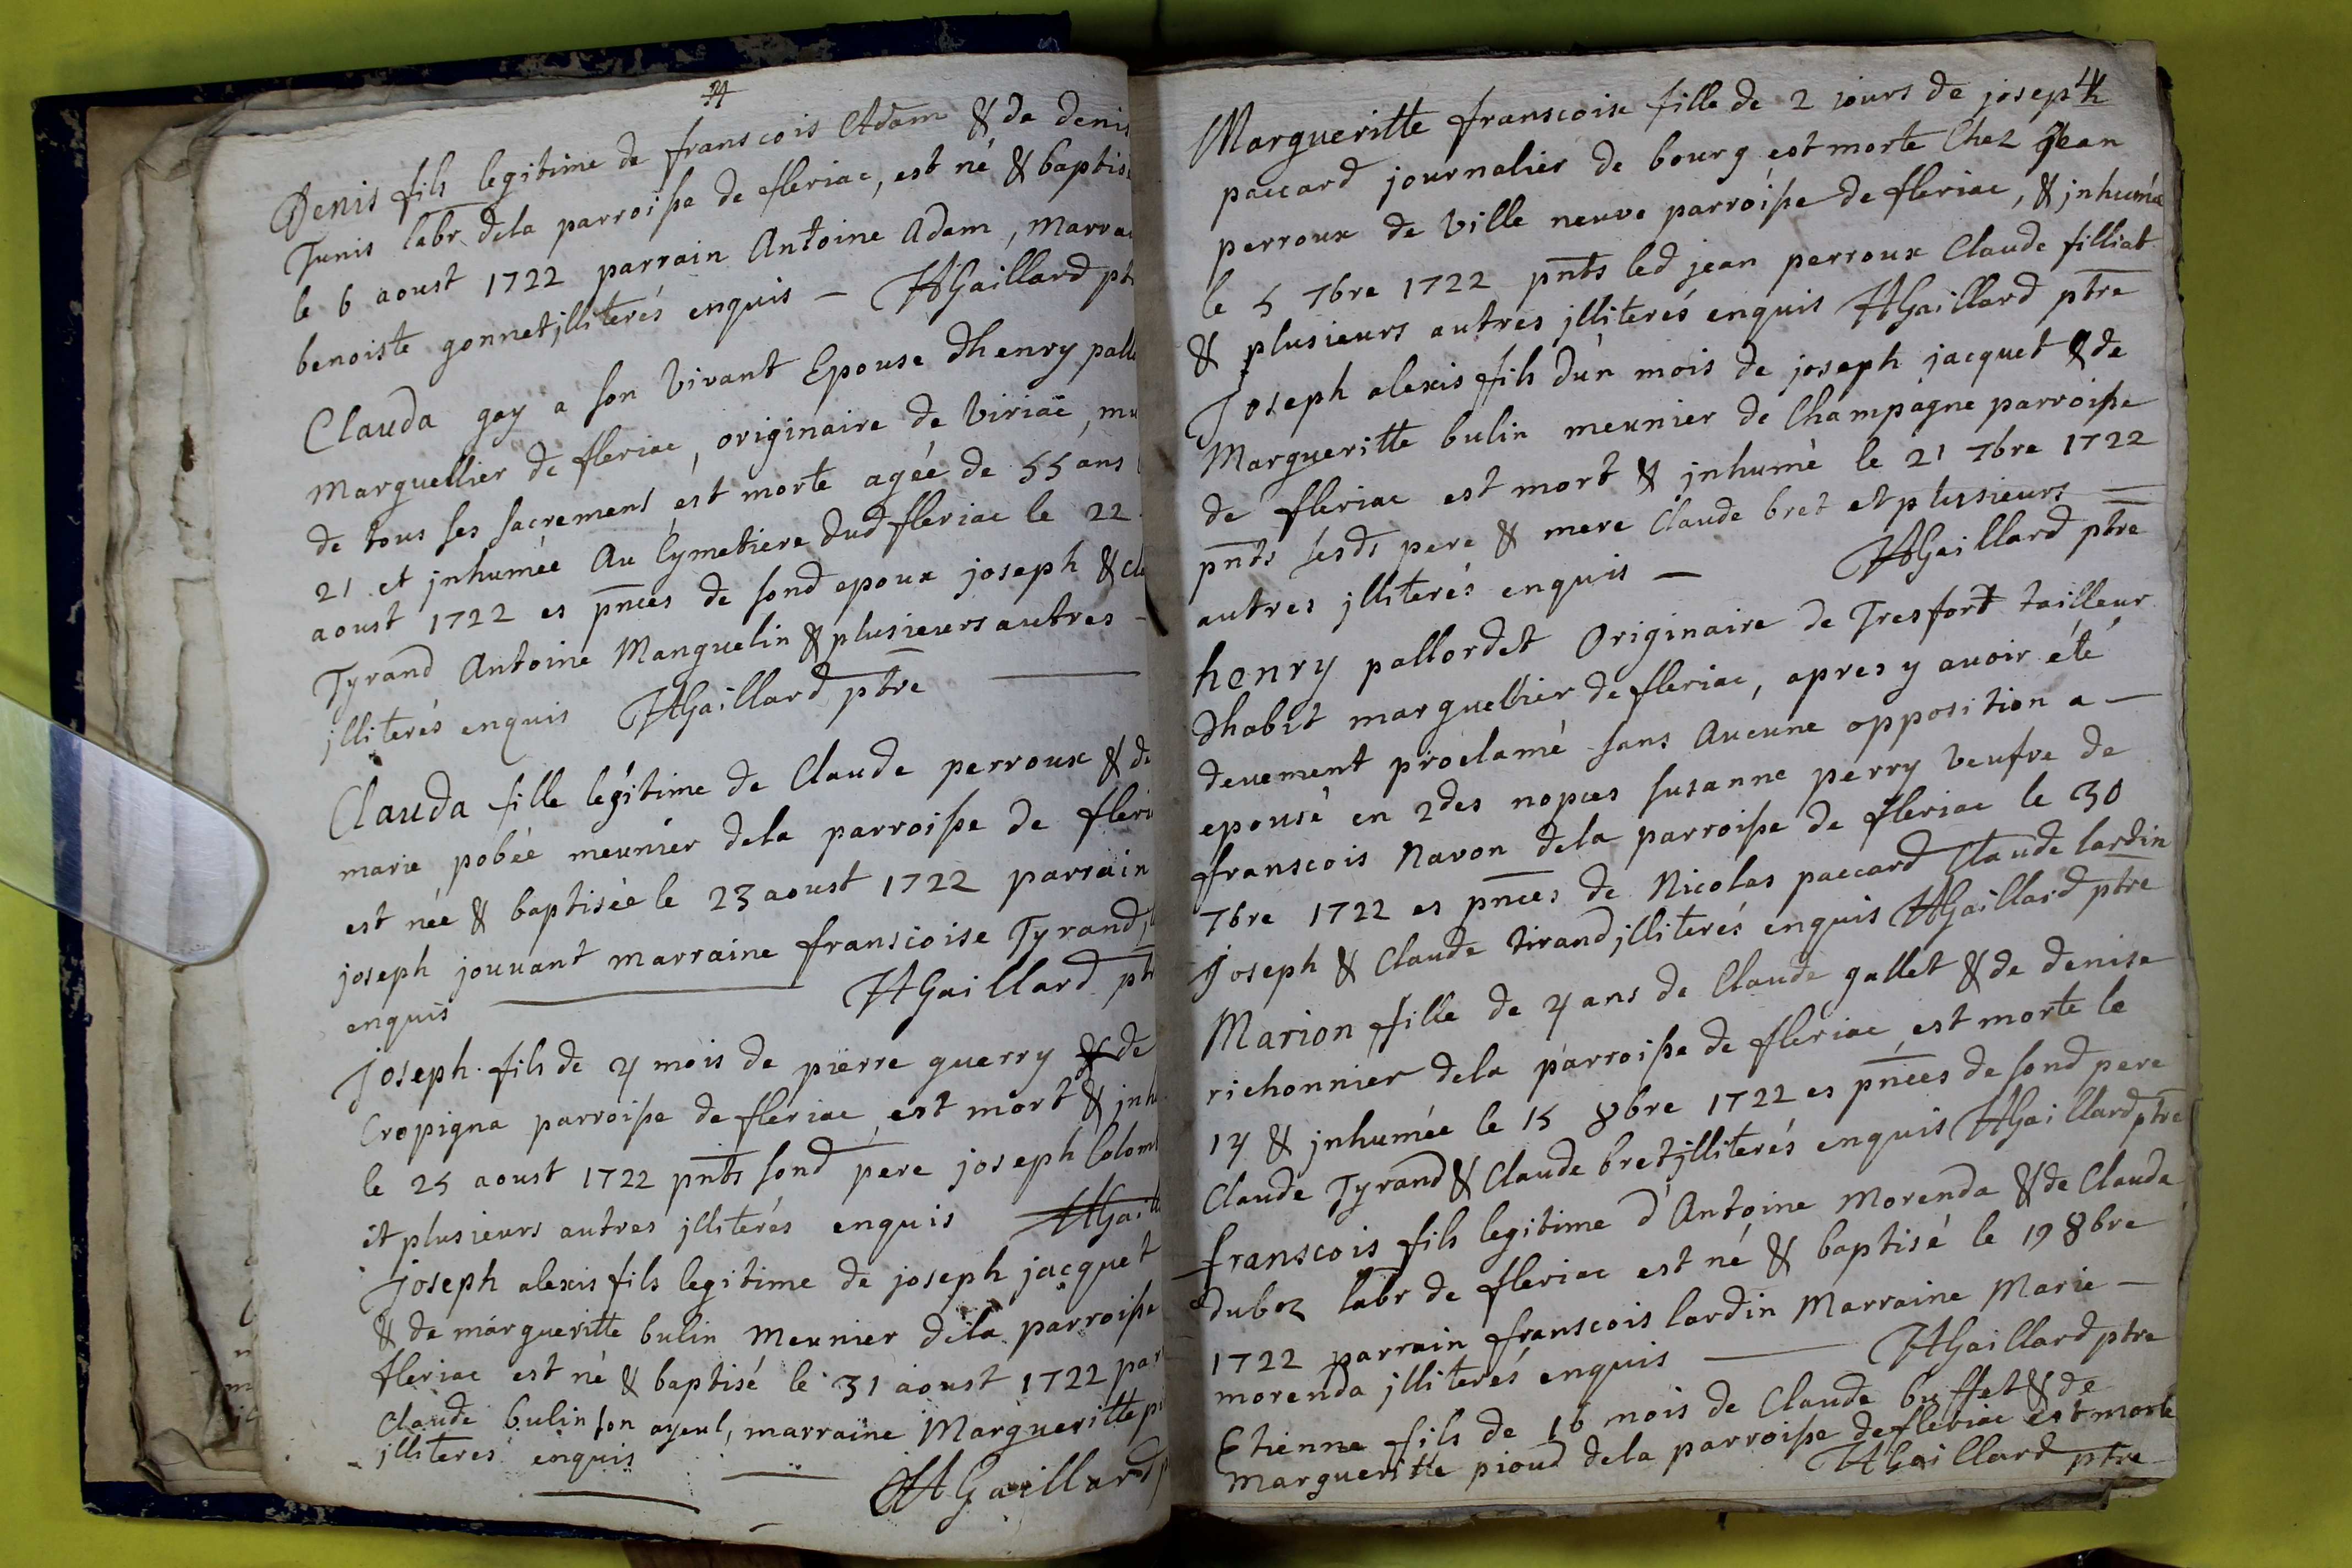 Denis fils legitime de franscois Adam & de denis
Tunis labr dela parroisse de fleriac, est né & baptis
le 6 aoust 1722 parrain Antoine Adam, marra
benoiste gonnet jlliterés enquis — Gaillard pt
Clauda gay a son vivant Epouse dhenry pall
marguellier de fleriac, originaire de viriac, mu
de tous ses sacremens est morte agée de 55 ans
21 et jnhumée Au Cymetiere dud fleriac le 22
aoust 1722 es pnces de sond epoux joseph & cl
Tyrand Antoine Manguelin & plusieurs autres —
jlliterés enquis Gaillard ptre
Clauda fille legitime de Claude perroux & de
marie pobée meunier dela parroisse de fleri
est née & baptisée le 23 aoust 1722 parrain
joseph jouvant marraine franscoise Tyrand
enquis Gaillard pt
Joseph fils de 4 mois de pierre guerry & de
Cropigna parroisse de fleriac est mort & jnh
le 25 aoust 1722 pnts sond pere joseph Colom
et plusieurs autres jlliterés enquis Gaill
Joseph alexis fils legitime de joseph jacquet
& de margueritte bulin meunier dela parroisse
fleriac est né & baptisé le 31 aoust 1722 par
Claude bulin son ayeul, marraine Margueritte
jlliteres enquis
Gaillard
Margueritte franscoise fille de 2 jours de joseph
paccard journalier de bourg est morte Chez jean
perroux de ville neuve parroisse de fleriac, & jnhumée
le 5 7bre 1722 pnts led jean perroux Claude filliat
& plusieurs autres jlliterés enquis Gaillard ptre
Joseph alexis fils dun mois de joseph jacquet & de
Margueritte bulin meunier de Champagne parroisse
de fleriac est mort & jnhumé le 21 7bre 1722
pnts lesds pere & mere Claude bret et plusieurs —
autres jlliterés enquis — Gaillard ptre
henry pallordet Originaire de Tresfort tailleur
dhabit marguellier de fleriac, apres y avoir été
deuement proclamé sans Aucune opposition a —
epousé en 2des nopces susanne perry veufve de
franscois Navon dela parroisse de fleriac le 30
7bre 1722 es pnces de Nicolas paccard Claude lardin
Joseph & Claude tirand jlliterés enquis Gaillard ptre
Marion fille de 4 ans de Claude gallet & de denise
richonnier dela parroisse de fleriac est morte le
14 & jnhumée le 15 8bre 1722 es pnces de sond pere
Claude Tyrand & Claude bret jlliterés enquis Gaillard ptre
franscois fils legitime d'Antoine Morenda & de Clauda
duboz labr de fleriac est né & baptisé le 19 8bre
1722 parrain franscois lardin Marraine Marie —
morenda jlliterés enquis — Gaillard ptre
Etienne fils de 16 mois de Claude buffet & de
Margueritte pioud dela parroisse de fleriac est morte
Gaillard ptre